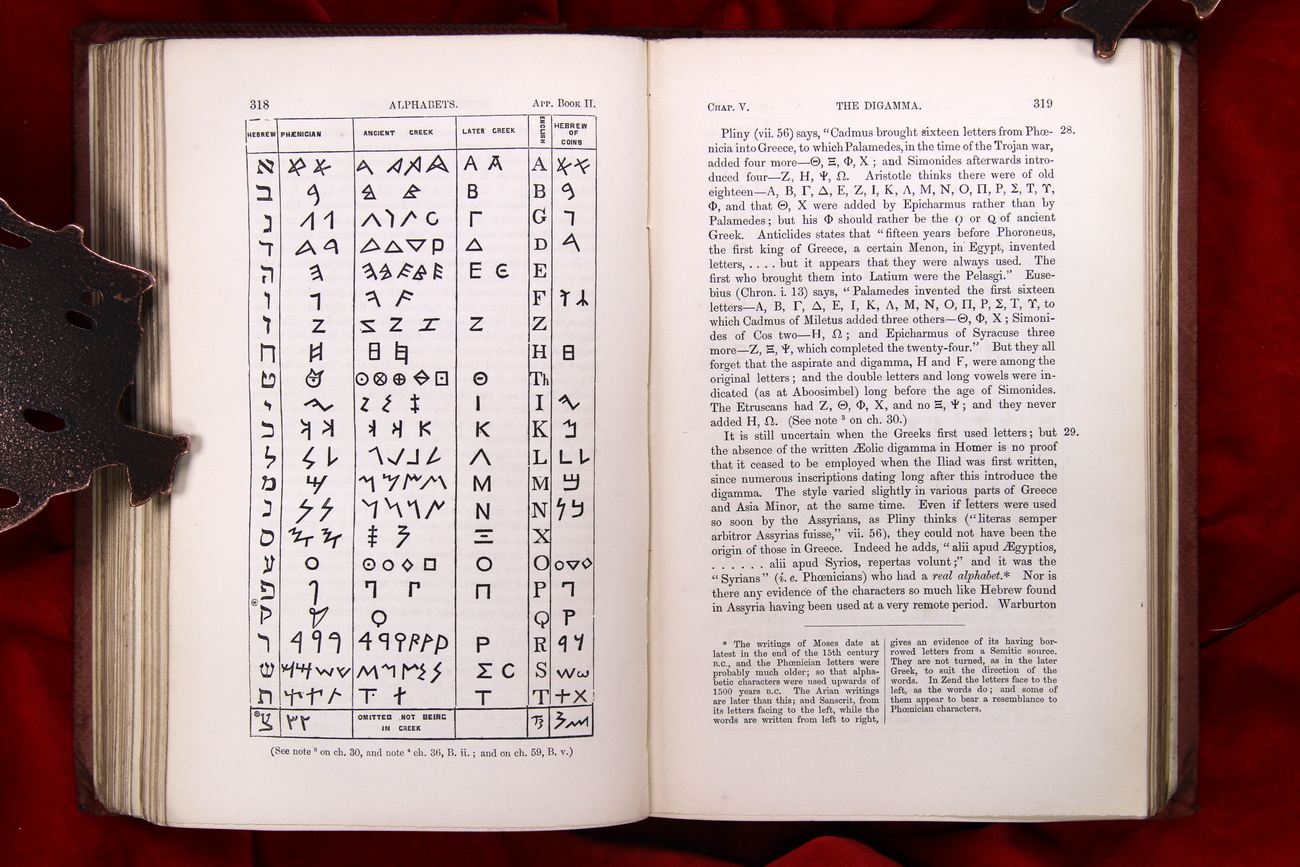 318 ALPHABETS. App. Book II.
HEBREW PHŒNICIAN ANCIENT GREEK LATER GREEK ENGLISH HEBREW OF COINS
א A A
ב B B
ג Γ G
ד Δ D
ה E Є E
ו F
ז Z Z
ח H
ט Θ Th
י I I
כ K K
ל Λ L
מ M M
נ N N
ס Ξ X
ע O O
פ Π P
ק Q
ר P R
ש Σ C S
ת T T
צ OMITTED NOT BEING IN GREEK Ts
(See note ³ on ch. 30, and note ⁴ ch. 36, B. ii.; and on ch. 59, B. v.)
Chap. V. THE DIGAMMA. 319
Pliny (vii. 56) says, “Cadmus brought sixteen letters from Phœ- 28.
nicia into Greece, to which Palamedes, in the time of the Trojan war,
added four more—Θ, Ξ, Φ, X; and Simonides afterwards intro-
duced four—Z, H, Ψ, Ω. Aristotle thinks there were of old
eighteen—A, B, Γ, Δ, E, Z, I, K, Λ, M, N, O, Π, P, Σ, T, ϒ,
Φ, and that Θ, X were added by Epicharmus rather than by
Palamedes; but his Φ should rather be the Ϙ or Q of ancient
Greek. Anticlides states that “fifteen years before Phoroneus,
the first king of Greece, a certain Menon, in Egypt, invented
letters, . . . . but it appears that they were always used. The
first who brought them into Latium were the Pelasgi.” Euse-
bius (Chron. i. 13) says, “Palamedes invented the first sixteen
letters—A, B, Γ, Δ, E, I, K, Λ, M, N, O, Π, P, Σ, T, ϒ, to
which Cadmus of Miletus added three others—Θ, Φ, X; Simoni-
des of Cos two—H, Ω; and Epicharmus of Syracuse three
more—Z, Ξ, Ψ, which completed the twenty-four.” But they all
forget that the aspirate and digamma, H and F, were among the
original letters; and the double letters and long vowels were in-
dicated (as at Aboosimbel) long before the age of Simonides.
The Etruscans had Z, Θ, Φ, X, and no Ξ, Ψ; and they never
added H, Ω. (See note ³ on ch. 30.)
It is still uncertain when the Greeks first used letters; but 29.
the absence of the written Æolic digamma in Homer is no proof
that it ceased to be employed when the Iliad was first written,
since numerous inscriptions dating long after this introduce the
digamma. The style varied slightly in various parts of Greece
and Asia Minor, at the same time. Even if letters were used
so soon by the Assyrians, as Pliny thinks (“literas semper
arbitror Assyrias fuisse,” vii. 56), they could not have been the
origin of those in Greece. Indeed he adds, “alii apud Ægyptios,
. . . . . . alii apud Syrios, repertas volunt;” and it was the
“Syrians” (i. e. Phœnicians) who had a real alphabet.* Nor is
there any evidence of the characters so much like Hebrew found
in Assyria having been used at a very remote period. Warburton
* The writings of Moses date at
latest in the end of the 15th century
B.C., and the Phœnician letters were
probably much older; so that alpha-
betic characters were used upwards of
1500 years B.C. The Arian writings
are later than this; and Sanscrit, from
its letters facing to the left, while the
words are written from left to right,
gives an evidence of its having bor-
rowed letters from a Semitic source.
They are not turned, as in the later
Greek, to suit the direction of the
words. In Zend the letters face to the
left, as the words do; and some of
them appear to bear a resemblance to
Phœnician characters.